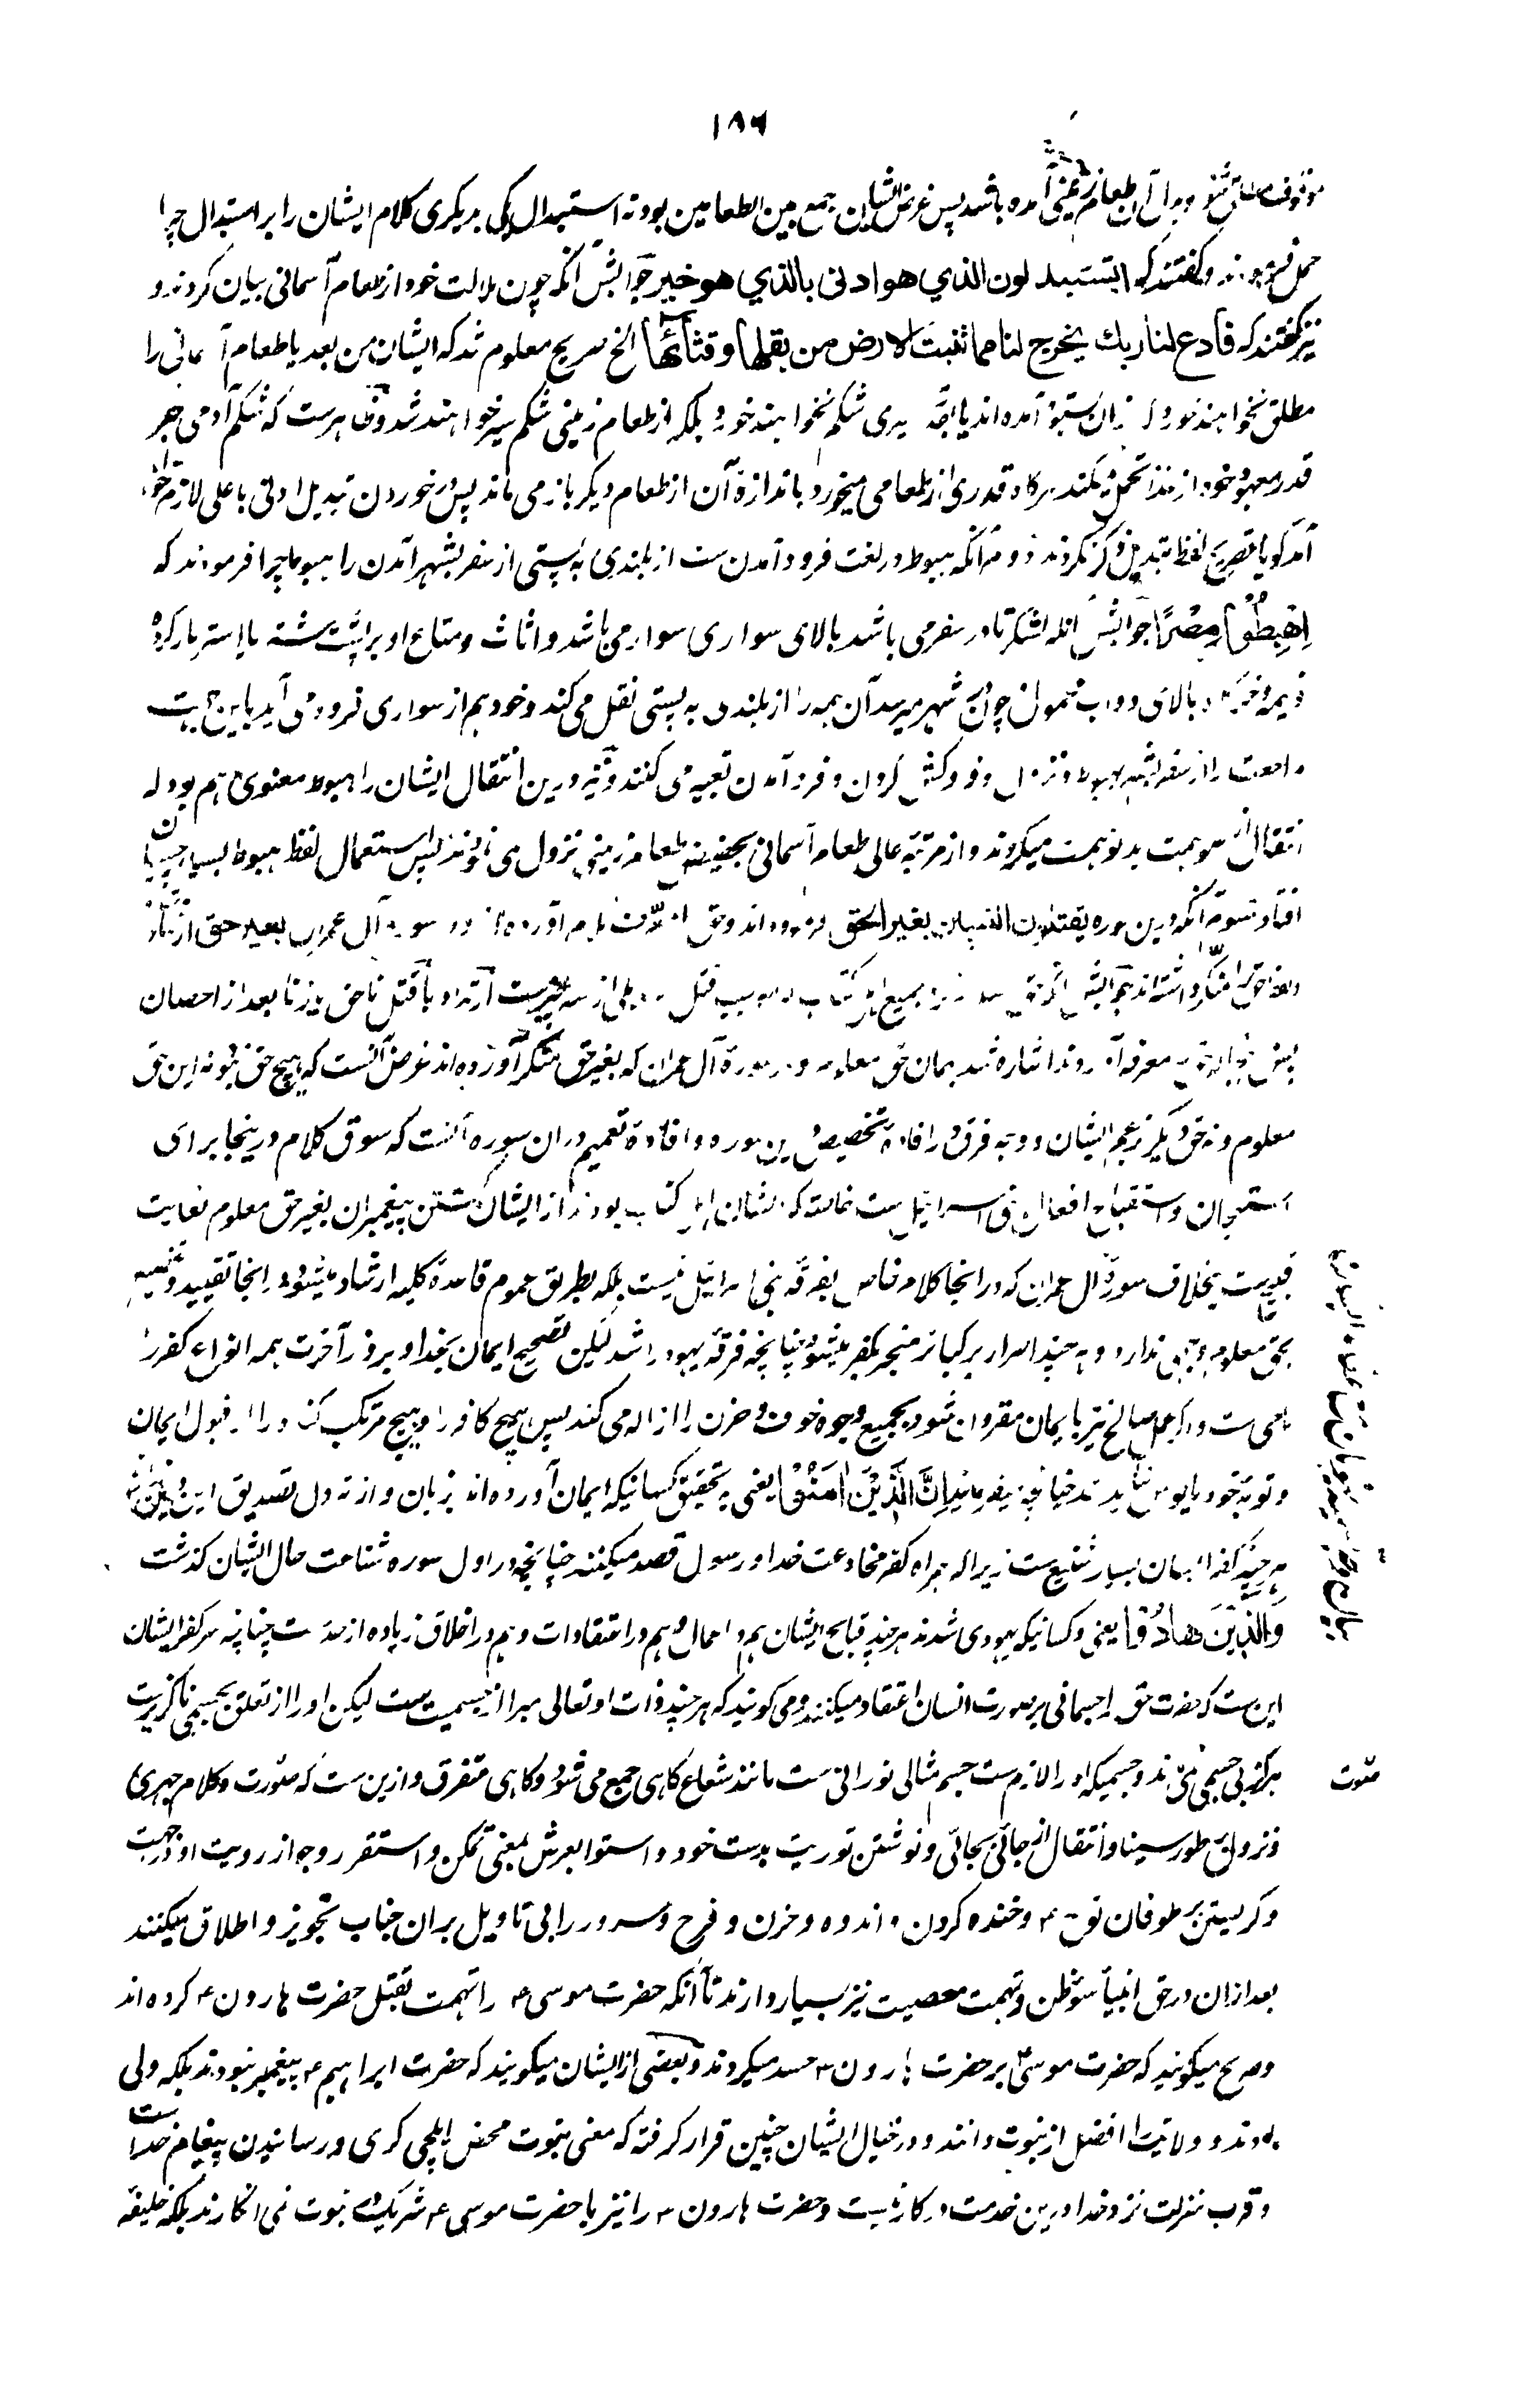 ۱۸۶
آن طعام زمینی آمده باشد پس غرض ایشان جمع بین الطعامین بود نه استبدال یکی بدیگری کلام ایشان را بر استبدال چرا
حمل فرمودند و گفتند که اتستبدلون الذي هو ادنی بالذي هو خیر جوابش آنکه چون ملالت خود از طعام آسمانی بیان کردند و
نیز گفتند که فادع لنا ربك یخرج لنا مما تنبت الارض من بقلها وقثائها الخ صریح معلوم شد که ایشان من بعد یا طعام آسمانی را
مطلق نخواهند خورد آمده اند یا بقدر سیری شکم نخواهند خورد بلکه از طعام زمینی شکم سیر خواهند شد و ظاهرست که شکم آدمی جز
قدر معهود خود از غذا تحمل نمیکند هرگاه قدری از طعامی میخورد باندازهٔ آن از طعام دیگر باز می ماند پس در خوردن تبدیل ادنی باعلی لازم خواهد
آمد گویا تصریح لفظ تبدیل ذکر نکردند دوم آنکه هبوط در لغت فرود آمدن ست از بلندی به پستی از سفر بشهر آمدن را هبوط چرا فرمودند که
اِهْبِطُوْا مِصْرًا جوابش آنکه لشکر تا در سفر می باشد بالای سواری سوار می باشد و اثاث و متاع او بر پشت شتر یا استر بار کرده
خیمه و خرگاه بالای دواب محمول چون بشهر میرسد آن همه را از بلندی به پستی نقل می کند و خود هم از سواری فرود می آید باین جهت
مراجعت را از سفر بشهر بهبوط و نزول و فروکش کردن و فرود آمدن تعبیر می کنند و نیز درین انتقال ایشان را هبوط معنوی هم بود که
انتقال از موهبت بدنو همت میکردند و از مرتبه عالی طعام آسمانی بحضیض طعام زمینی نزول می نمودند پس استعمال لفظ هبوط بسیار چسپان
افتاد سوم آنکه درین سوره یقتلون النبیین بغیر الحق فرموده اند و حق را معرف بلام آورده اند در سوره آل عمران بغیر حق ارشاد
جوابش آنکه جمیع اهل کتاب سبب قتل یکی از سه چیزست ارتداد یا قتل ناحق یا زنا بعد از احصان
معرفه آوردند اشاره شد بهمان حق معلوم و در سورة آل عمران که بغیر حق منکر آورده اند غرض آنست که هیچ حق نبود نه این حق
معلوم و نه حق دیگر بزعم ایشان و وجه فرق در افاده تخصیص درین سوره و افادة تعمیم در ان سوره آنست که سوق کلام درینجا برای
استهجان و استقباح افعال بنی اسرائیل ست خاصة که ایشان اهل کتاب بودند از ایشان کشتن پیغمبران بغیر حق معلوم بغایت
قبیح ست بخلاف سورة آل عمران که در انجا کلام خاص بفرقه بنی اسرائیل نیست بلکه بطریق عموم قاعدة کلیه ارشاد میشود در انجا تقیید
بحق معلوم وجهی ندارد و هر چند اصرار بر کبائر منجر بکفر میشود چنانچه فرقه یهود را شد لیکن تصحیح ایمان بخدا و بروز آخرت همه انواع کفر را
ماحی ست و اگر عمل صالح نیز بایمان مقرون شود بجمیع وجوه خوف و حزن را ازاله می کند پس هیچ کافر را و هیچ مرتکب گناه را از قبول ایمان
و توبه خود مایوس نباید شد چنانچه میفرمایند اِنَّ الَّذِیْنَ اٰمَنُوْا یعنی به تحقیق کسانیکه ایمان آورده اند بزبان و از ته دل تصدیق
هر چند کفر ایشان بسیار شنیع ست زیرا که همراه کفر مخادعت خدا و رسول قصد میکنند چنانچه در اول سوره شناعت حال ایشان گذشت
وَالَّذِیْنَ هَادُوْا یعنی و کسانیکه یهودی شدند هر چند قبایح ایشان هم در اعمال و هم در اعتقادات و هم در اخلاق زیاده از حدست چنانچه سر کفر ایشان
این ست که حضرت حق را جسمانی بر صورت انسان اعتقاد میکنند و می گویند که هر چند ذات او تعالی مبرا از جسمیت ست لیکن او را از تعلق بجسمی ناگزیرست
هرگز بی جسمی نمی ماند و جسمیکه او را لازم ست جسم مثالی نورانی ست مانند شعاع گاهی جمع می شود و گاهی متفرق و ازین ست که صورت و کلام جهری
و نزول بر طور سینا و انتقال از جائی بجائی و نوشتن توریت بدست خود و استوا بعرش بمعنی تمکن و استقرار و جواز رویت او در جهت
و گریستن بر طوفان نوح ع و خنده کردن و اندوه و حزن و فرح و سرور را بی تاویل بران جناب تجویز و اطلاق میکنند
بعد ازان در حق انبیا سوء ظن و تهمت معصیت نیز بسیار دارند تا آنکه حضرت موسی ع را تهمت بقتل حضرت هارون ع کرده اند
و صریح میگویند که حضرت موسی ع بر حضرت هارون ع حسد میکردند و بعضی از ایشان میگویند که حضرت ابراهیم ع پیغمبر نبودند بلکه ولی
بودند و ولایت را افضل از نبوت دانند و در خیال ایشان چنین قرار گرفته که معنی نبوت محض ایلچی گری و رسانیدن پیغام خداست
و قرب منزلت نزد خدا درین خدمت در کار نیست و حضرت هارون ع را نیز با حضرت موسی ع شریک در نبوت نمی انگارند بلکه خلیفه